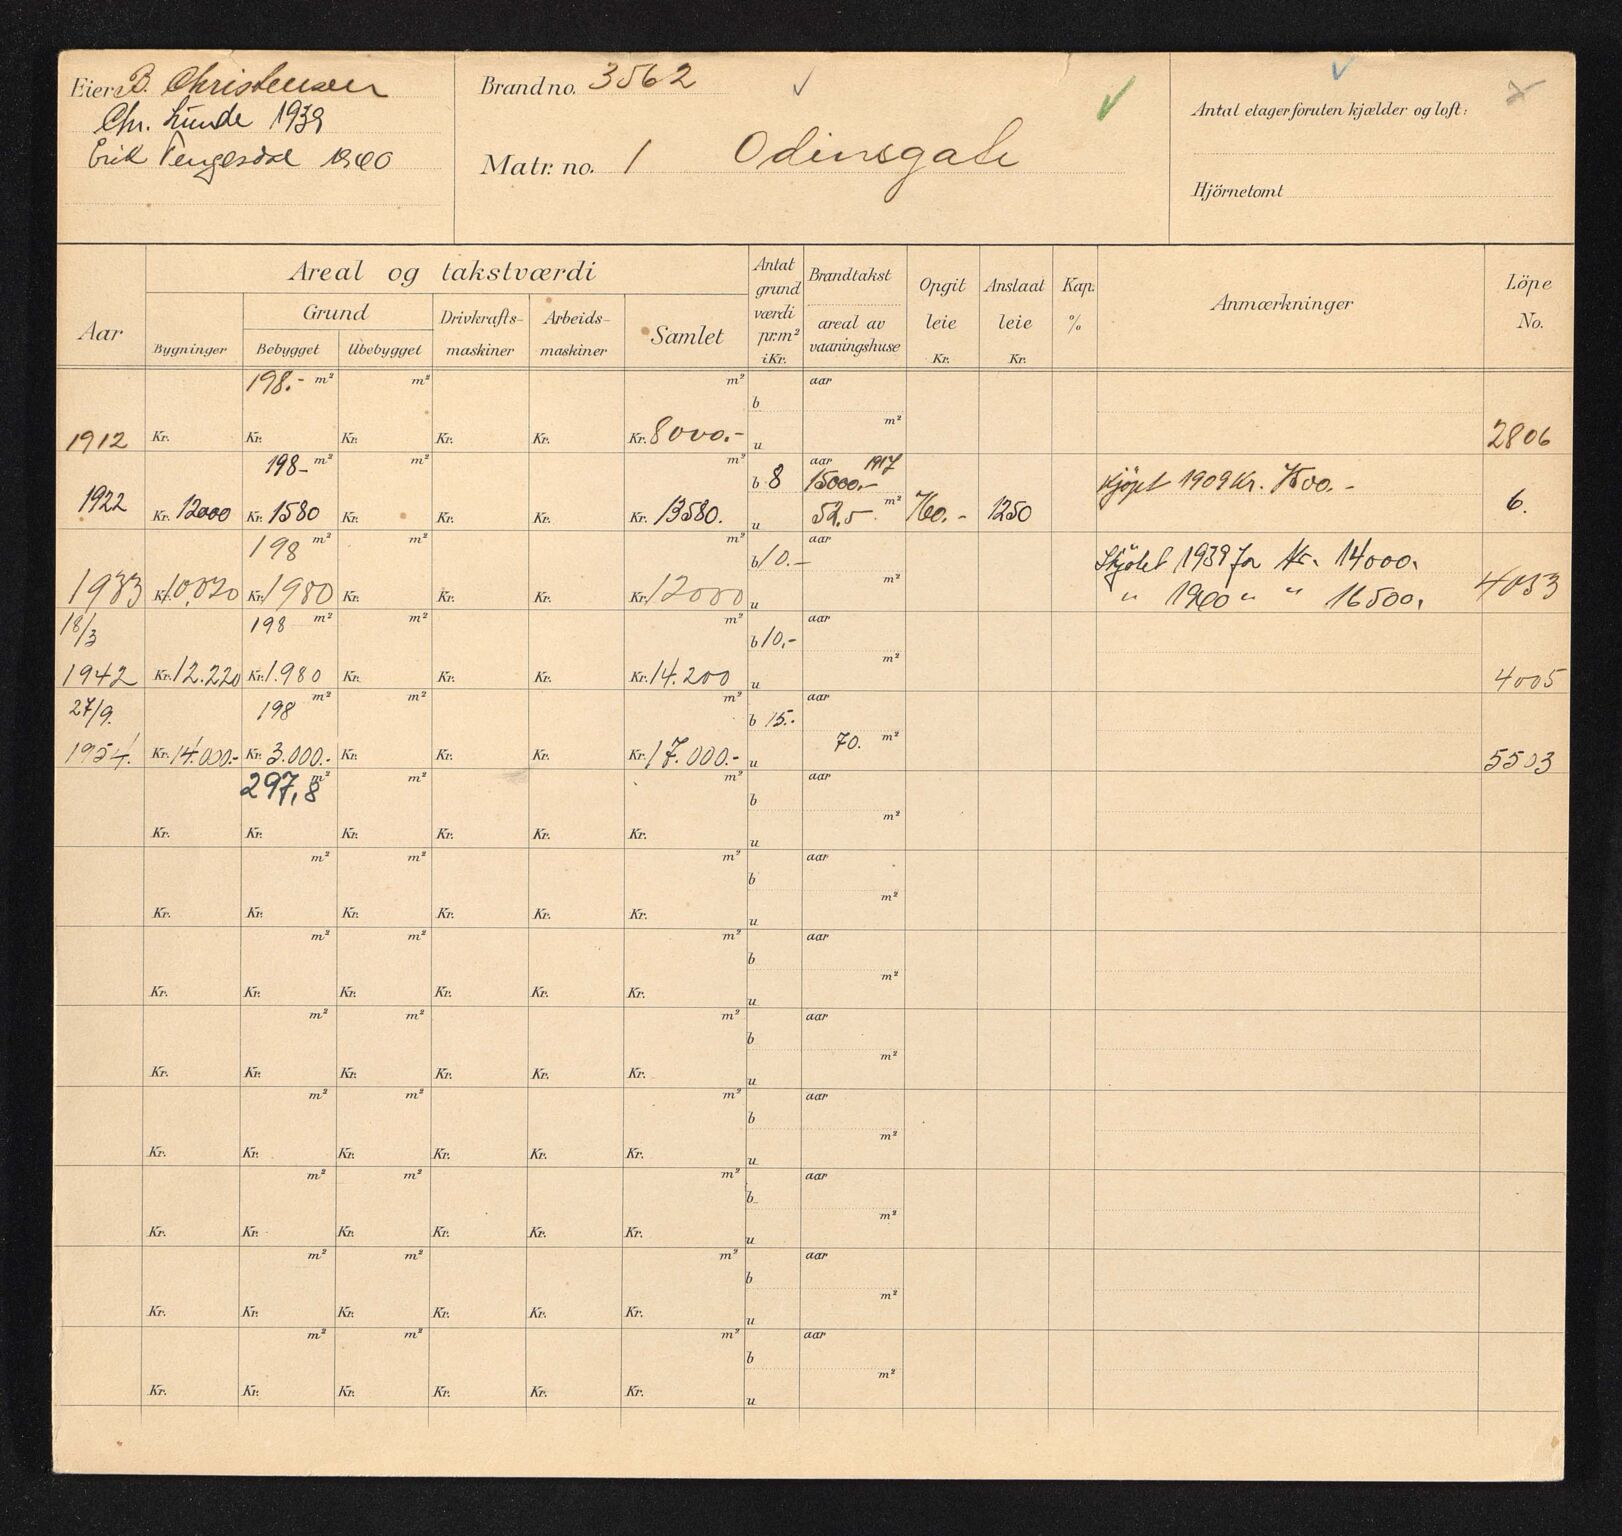 Eier: B. Christensen
Chr. Lunde 1939
Erik Tengesdal 1940
Brand no. 3562
Matr. no. 1 Odinsgate
Antal etager foruten kjælder og loft:
Hjörnetomt
Aar
Areal og takstværdi
Bygninger
Grund
Bebygget Ubebygget
Drivkrafts-
maskiner
Arbeids-
maskiner
Samlet
Antat
grund
værdi
pr. m²
i Kr.
Brandtakst
areal av
vaaningshuse
Opgit
leie
Kr.
Anslaat
leie
Kr.
Kap.
%
Anmærkninger
Löpe
No.
198.- m² m² m² aar
b
m²
1912 Kr. Kr. Kr. Kr. Kr. Kr. 8000.- u 2806
198- m² m² m² aar 1917
b 8 15000.- Kjöpt 1909 Kr. 7500.-
1922 Kr. 12000 Kr. 1580 Kr. Kr. Kr. Kr. 13580. u 52,5 m² 760.- 1250 6.
198 m² m² m² aar
b 10.- Skjötet 1939 for Kr. 14000.
m²
1933 Kr. 10,020 Kr. 1980 Kr. Kr. Kr. Kr. 12000 u " 1940 " " 16500. 4053
18/3 198 m² m² m² aar
b 10,-
m²
1942 Kr. 12.220 Kr. 1.980 Kr. Kr. Kr. Kr. 14.200 u 4005
27/9. 198 m² m² m² aar
b 15.-
70. m²
1954. Kr. 14.000.- Kr. 3.000.- Kr. Kr. Kr. Kr. 17.000.- u 5503
297,8 m² m² m² aar
b
m²
Kr. Kr. Kr. Kr. Kr. Kr. u
m² m² m² aar
b
m²
Kr. Kr. Kr. Kr. Kr. Kr. u
m² m² m² aar
b
m²
Kr. Kr. Kr. Kr. Kr. Kr. u
m² m² m² aar
b
m²
Kr. Kr. Kr. Kr. Kr. Kr. u
m² m² m² aar
b
m²
Kr. Kr. Kr. Kr. Kr. Kr. u
m² m² m² aar
b
m²
Kr. Kr. Kr. Kr. Kr. Kr. u
m² m² m² aar
b
m²
Kr. Kr. Kr. Kr. Kr. Kr. u
m² m² m² aar
b
m²
Kr. Kr. Kr. Kr. Kr. Kr. u